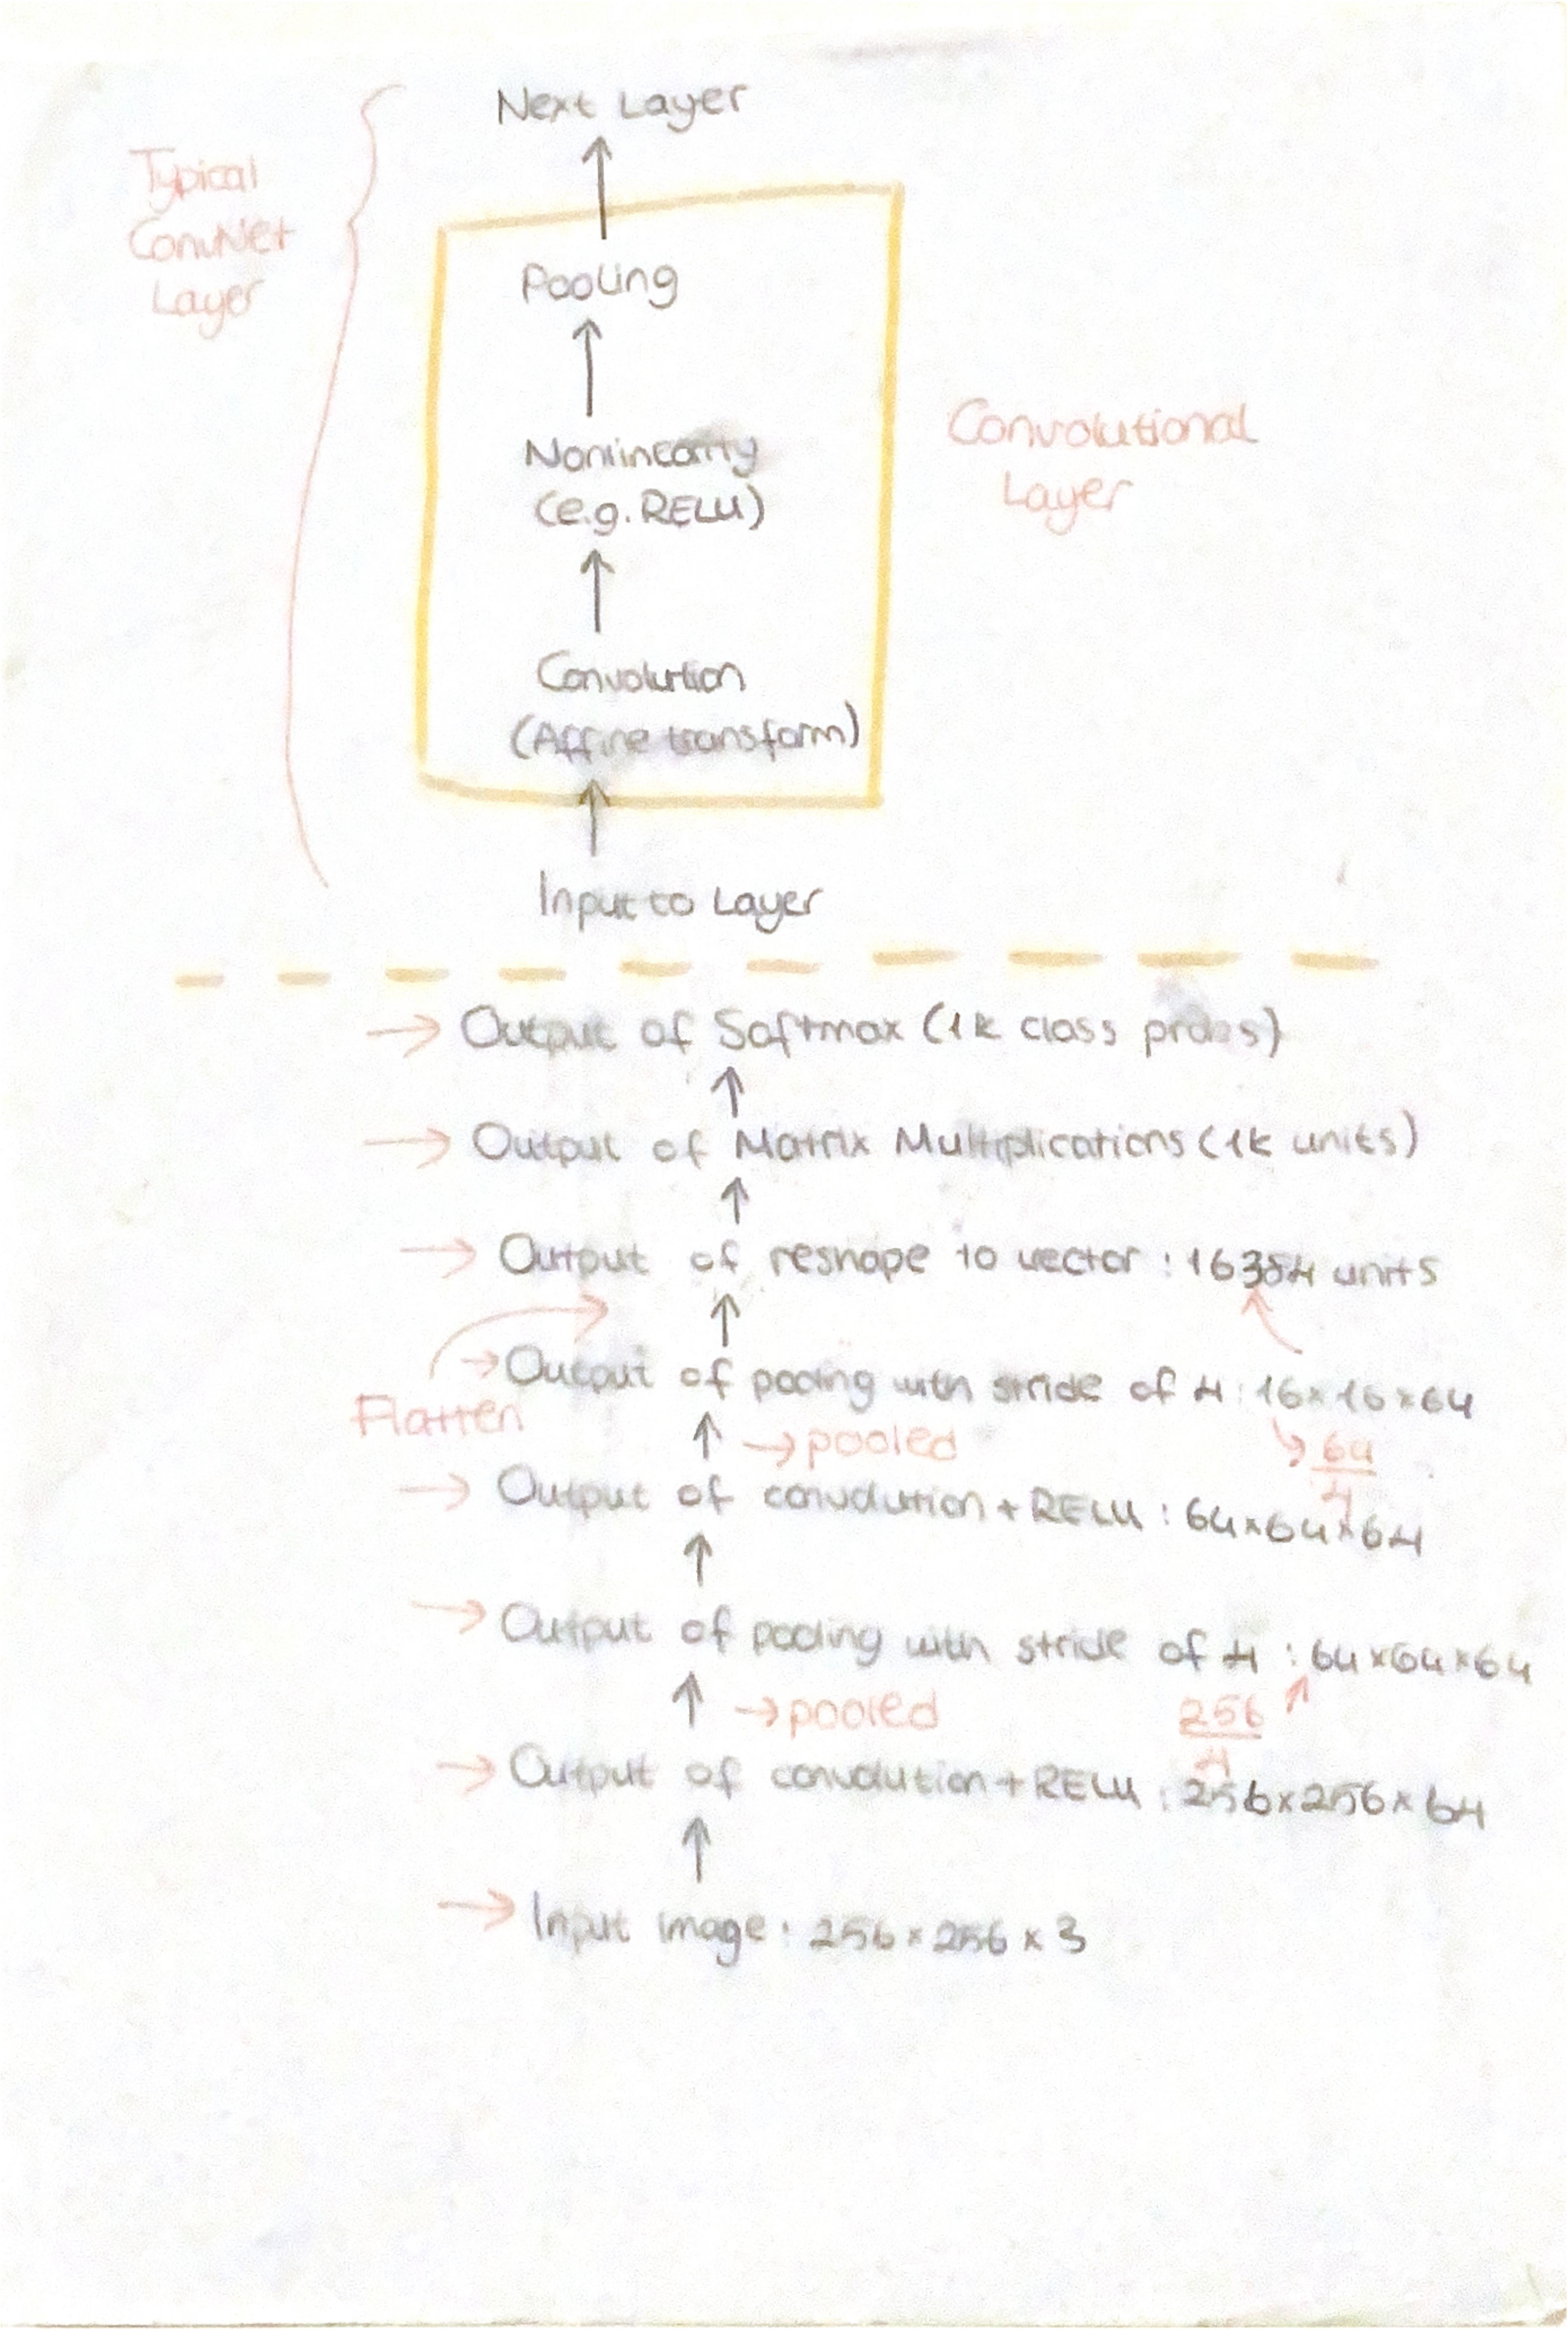 Next Layer
Typical
ConvNet
Layer
Pooling
Nonlinearity
(e.g. RELU)
Convolutional
Layer
Convolution
(Affine transform)
Input to Layer
→ Output of Softmax (1k class probs)
→ Output of Matrix Multiplications (1k units)
→ Output of reshape to vector : 16384 units
→ Output of pooling with stride of 4 : 16×16×64
Flatten
→ pooled
64
4
→ Output of convolution + RELU : 64×64×64
→ Output of pooling with stride of 4 : 64×64×64
→ pooled
256
4
→ Output of convolution + RELU : 256×256×64
→ Input image : 256×256×3